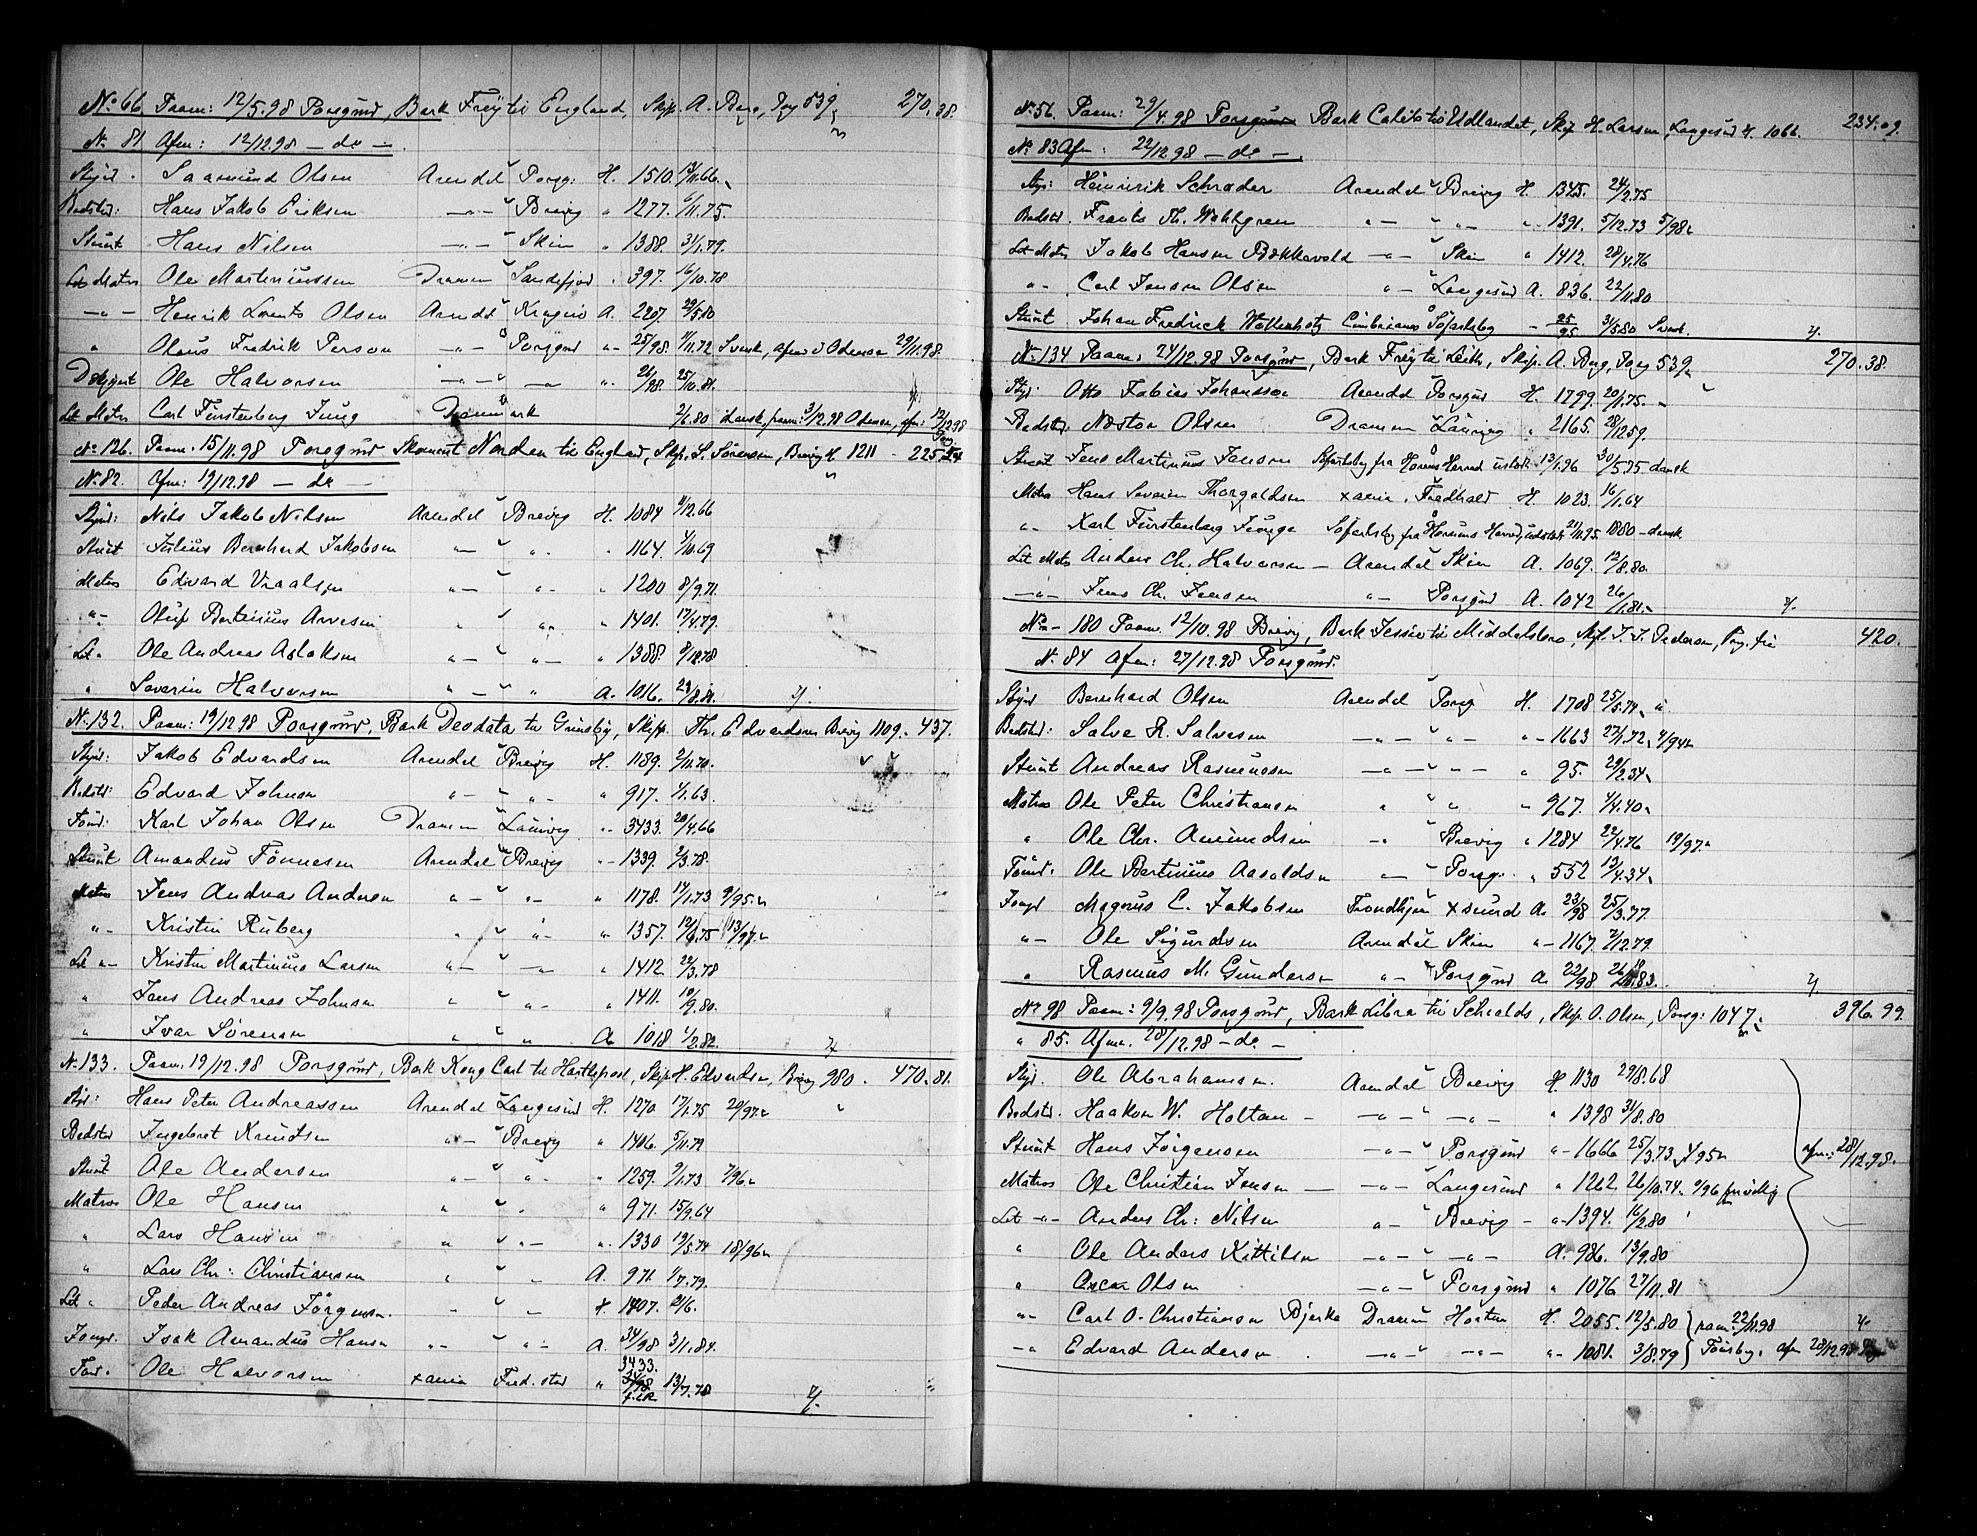 No 66. Paam: 12/5.98 Porsgrund, Bark Freytil England, Skip. A. Berg, Porsg 539, 270.38.
No 81 Afm: 12/12.98 — do —
Styrd. Saamund Olsen Arendal Porsg: H. 1510.
Bedstd: Hans Jakob Eriksen — „ — Brevig „ 1277. 11.75.
Stuert Hans Nilsen — „ — Skien „ 1388. 3/1.79.
Let Matros Ole Martiniussen Drammen Sandefjord „ 397. 16/10.78
— „ — Henrik Lorents Olsen Arendal Kragerø A. 2207. 29/5.80
„ Olaus Fredrik Person — „ — Porsgrund „ — 25/98. 11.72 Svensk, afm. i Odense 29/11.98.
Dæksgut Ole Halvorsen — „ — „ — „ 26/98. 25/10.81.
Let Matros Carl Fürstenberg Jung Danmark 2/1.80 dansk, paam: 3/12.98 Odense, afm: 12/12.98
No 126. Paam. 15/11.98 Porsgrund Skonnert Norden til England, Skip. S. Sørensen, Brevig H. 1211 — 225.54
No. 82 Afm: 19/12.98 — do —
Styrd: Nils Jakob Nilsen Arendal Brevig H. 1084 11/12.66
Stuert Julius Bernhard Jakobsen „ — „ „ 1164. 1/10.69
Matros Edvard Vraalsen „ — „ — „ 1200 8/9.71.
„ — Oluf Bertinius Arvesen „ „ — „ 1401. 17/4.79.
Let „ Ole Andreas Aslaksen „ — „ — „ 1388. 9/12.78
„ Severin Halvorsen „ — „ A. 1016. 29/8.81.
No. 132. Paam: 19/12.98 Porsgrund, Bark Deodata til Grimsby, Skip. Th. Edvardsen Brevig 1109. 437.
Styrd: Jakob Edvardsen Arendal Brevig H. 1189. 2/11.70.
Bedstd: Edvard Johnsen „ — „ — „ 917. 1/1.63.
Tømd: Karl Johan Olsen Drammen Laurvig „ — 3433. 20/4.66
Stuert Amandus Tønnesen Arendal Brevig „ — 1339. 2/3.78.
Matros Jens Andreas Andersen „ — „ — „ 1178. 14/1.73 9/95.
„ — Kristen Ruberg „ „ — „ 1357. 12/6.75 13/97.
Let „ — Kristen Martinius Larsen „ — „ — „ 1412 22/3.78
„ Jens Andreas Johnsen „ „ — „ 1411. 10/9.80.
„ Ivar Sørensen „ „ A. 1018 1/2.82.
No. 133. Paam: 19/12.98 Porsgrund, Bark Kong Carl til Hartlepool, Skip. H. Edvardsen, Brevig 980. 470.81.
Styrd: Hans Peter Andreassen Arendal Langesund H. 1270 17/1.75 20/97.
Bedstd Ingebret Knudsen „ — Brevig „ 1406. 5/11.79
Stuert Ole Andersen „ — „ „ 1259. 9/1.73 7/96.
Matros Ole Hansen „ „ „ 971. 15/9.64
„ Lars Hansen „ „ — „ 1330 19/5.74 18/96
„ Lars Chr: Christiansen „ „ A. 971 1/7.79.
Let „ Peder Andreas Jørgensen. „ „ H. 1407.
Jungm. Isak Amandus Hansen „ — „ — A. 34/98 3/1.84.
Tømr. Ole Halvorsen Xania Fred.stad „ 3433. 13/7.78
No. 56. Paam: 29/4.98 Porsgrund Bark Calito til Udlandet, Skip H. Larsen, Langesund H. 1066. 234.09.
No. 83 Afm: 22/12.98 — do —
Styr: Heinrik Schrøder Arendal Brevig H. 1345. 24/2.75
Bedstd. Frants Th. Wahlgren „ — „ — „ 1391. 5/12.73 5/98.
Let Matros Jakob Hansen Bækkevold — „ — Skien „ 1412. 28/4.76
„ — Carl Jensen Olsen „ — Langesund A. 836. 22/11.80
Stuert Johan Fredrick Wollenhotz Cimbrianus Søfartsbog — 25/95 31/5.80 Svensk.
No. 134 Paam: 24/12.98 Porsgrund, Bark Frey til Leith, Skip. A. Berg, Porsg 539. 270.38.
Styr: Otto Tobias Johansson Arendal Porsgrund H. 1799. 20/1.75.
Bedstd: Nestor Olsen Drammen Laurvig „ 2165. 28/12.59.
Stuert Jens Martinus Jensen Søfartsbog fra Horsens Herred udstedt 13/1.96 30/5.75 dansk
Matros Hans Severin Thorgaldsen Xania. Fredhald H. 1023. 16/1.64
„ — Karl Fürstenberg Jeunge Søfartsbog fra Horsens Herred, udstedt 21/11.95. 1880 — dansk
Let Matros Anders Ch. Halvorsen — Arendal Skien A. 1069. 12/8.80.
— „ — Jens Chr. Jensen „ — Porsgrund A. 1042 26/1.81.
No. — 180 Paam. 12/10.98 Brevig, Bark Jessie til Middelsbro, Skip. J. J. Pedersen, 420.
No. 84 Afm: 27/12.98 Porsgrund.
Styrd Bernhard Olsen Arendal Porsg H. 1708 25/5.74.
Bedstd: Salve R. Salvesen — „ — „ — „ — 1663 27/11.72, 4/94
Stuert Andreas Rasmussen — „ — „ — „ 95. 29/2.34.
Matros Ole Peter Christiansen „ „ „ 967. 4/4.40.
„ Ole Chr. Amundsen — „ Brevig „ 1284 22/4.76 19/97.
Tømd. Ole Bertinius Aasoldsen „ — Porsg. „ 552 13/4.34.
Jungd Magnus C. Jakobsen Trondhjem Xsund A. 23/98 25/3.77.
„ — Ole Sigurdsen Arendal Skien „ — 1167. 2/12.79.
„ Rasmus M. Gundersen „ — Porsgrund A. 22/98
No. 98 Paam: 9/9.98 Porsgrund, Bark Libra til Schields, Skip O. Olsen, Porsg: 1047. 396.99.
„ 85. Afm. 28/12.98 — do —
Styr. Ole Abrahamsen. Arendal Brevig H. 1130 29/8.68
Bedstd. Haakon W. Holtan — „ — „ — „ 1398 31/8.80
Stuert Hans Jørgensen — „ — Porsgrund „ — 1666 25/3.73, 4/95 afm: 28/12.98.
Matros Ole Christian Jensen — „ — Langesund „ 1262. 26/10.74. 9/96 frivillig
Let — „ — Anders Chr: Nilsen „ — Brevig — „ — 1394. 16/2.80
„ Ole Anders Kittilsen — „ — „ — A. 986. 13/9.80
„ Oscar Olsen — „ — Porsgrund „ 1076 27/11.81
„ — Carl O. Christiansen Bjerke Drammen Horten H. 2055. 12/5.80 paam: 22/11.98
— „ Edvard Andersen. — „ — „ — „ — 1081. 3/8.79 Tønsbg. afm 28/12.98 Porsg